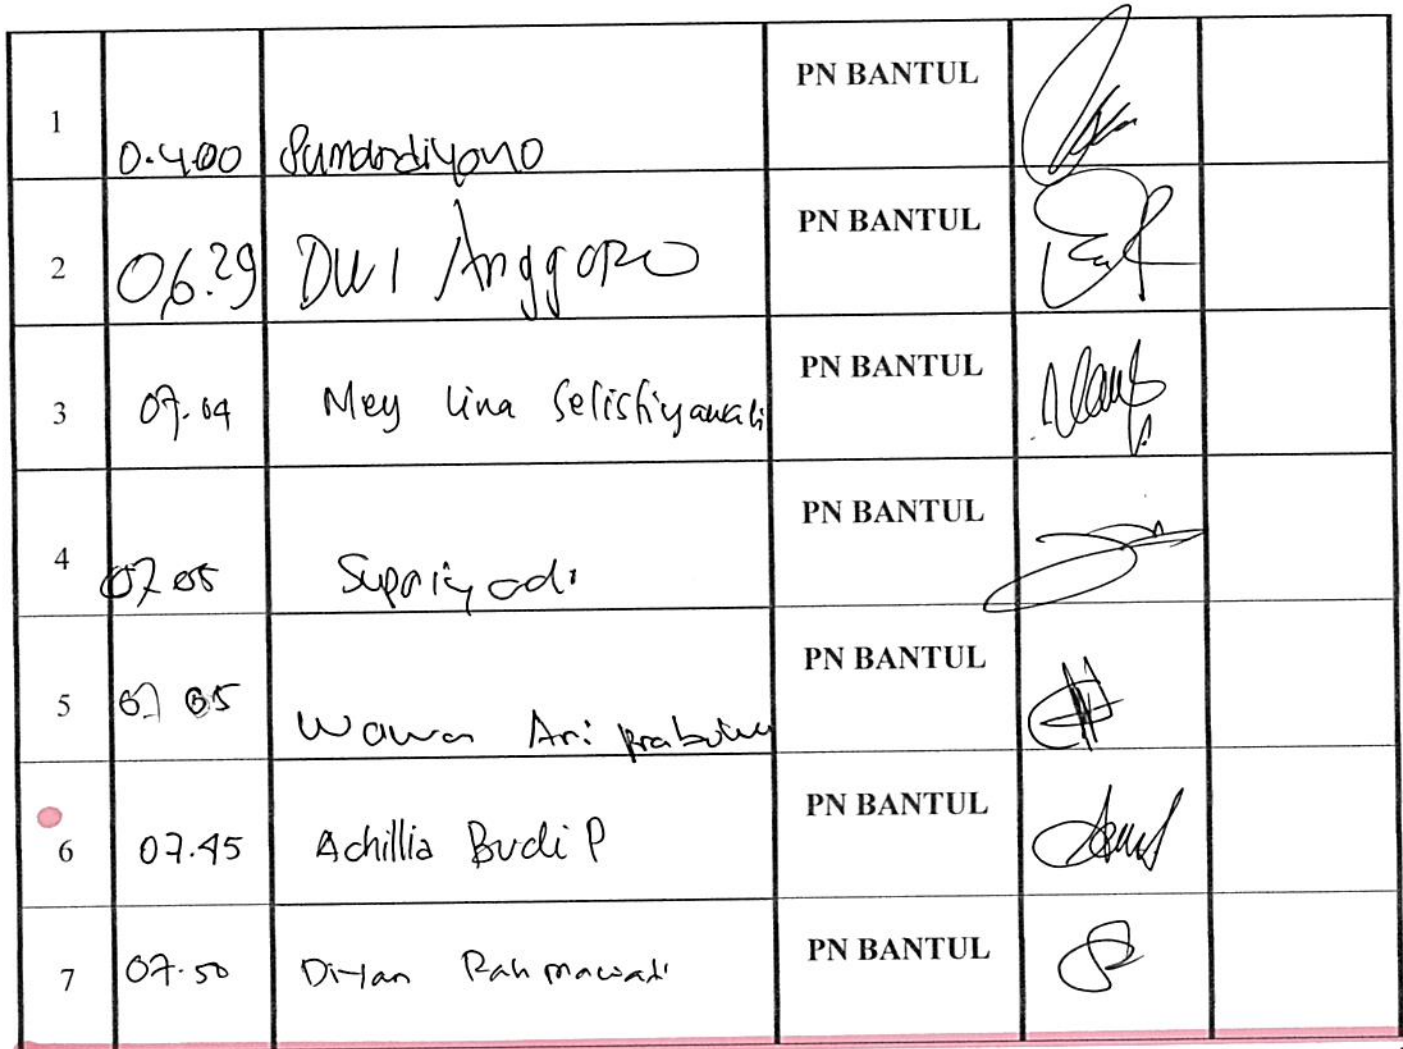 1 0.400 Sumardiyono PN BANTUL
2 06.29 DWI Anggoro PN BANTUL
3 07.04 Mey Lina Selistiyawati PN BANTUL
4 07.05 Supriyadi PN BANTUL
5 07 05 Wawan Ari PN BANTUL
6 07.45 Achillia Budi P PN BANTUL
7 07.50 Diyan Rahmawati PN BANTUL